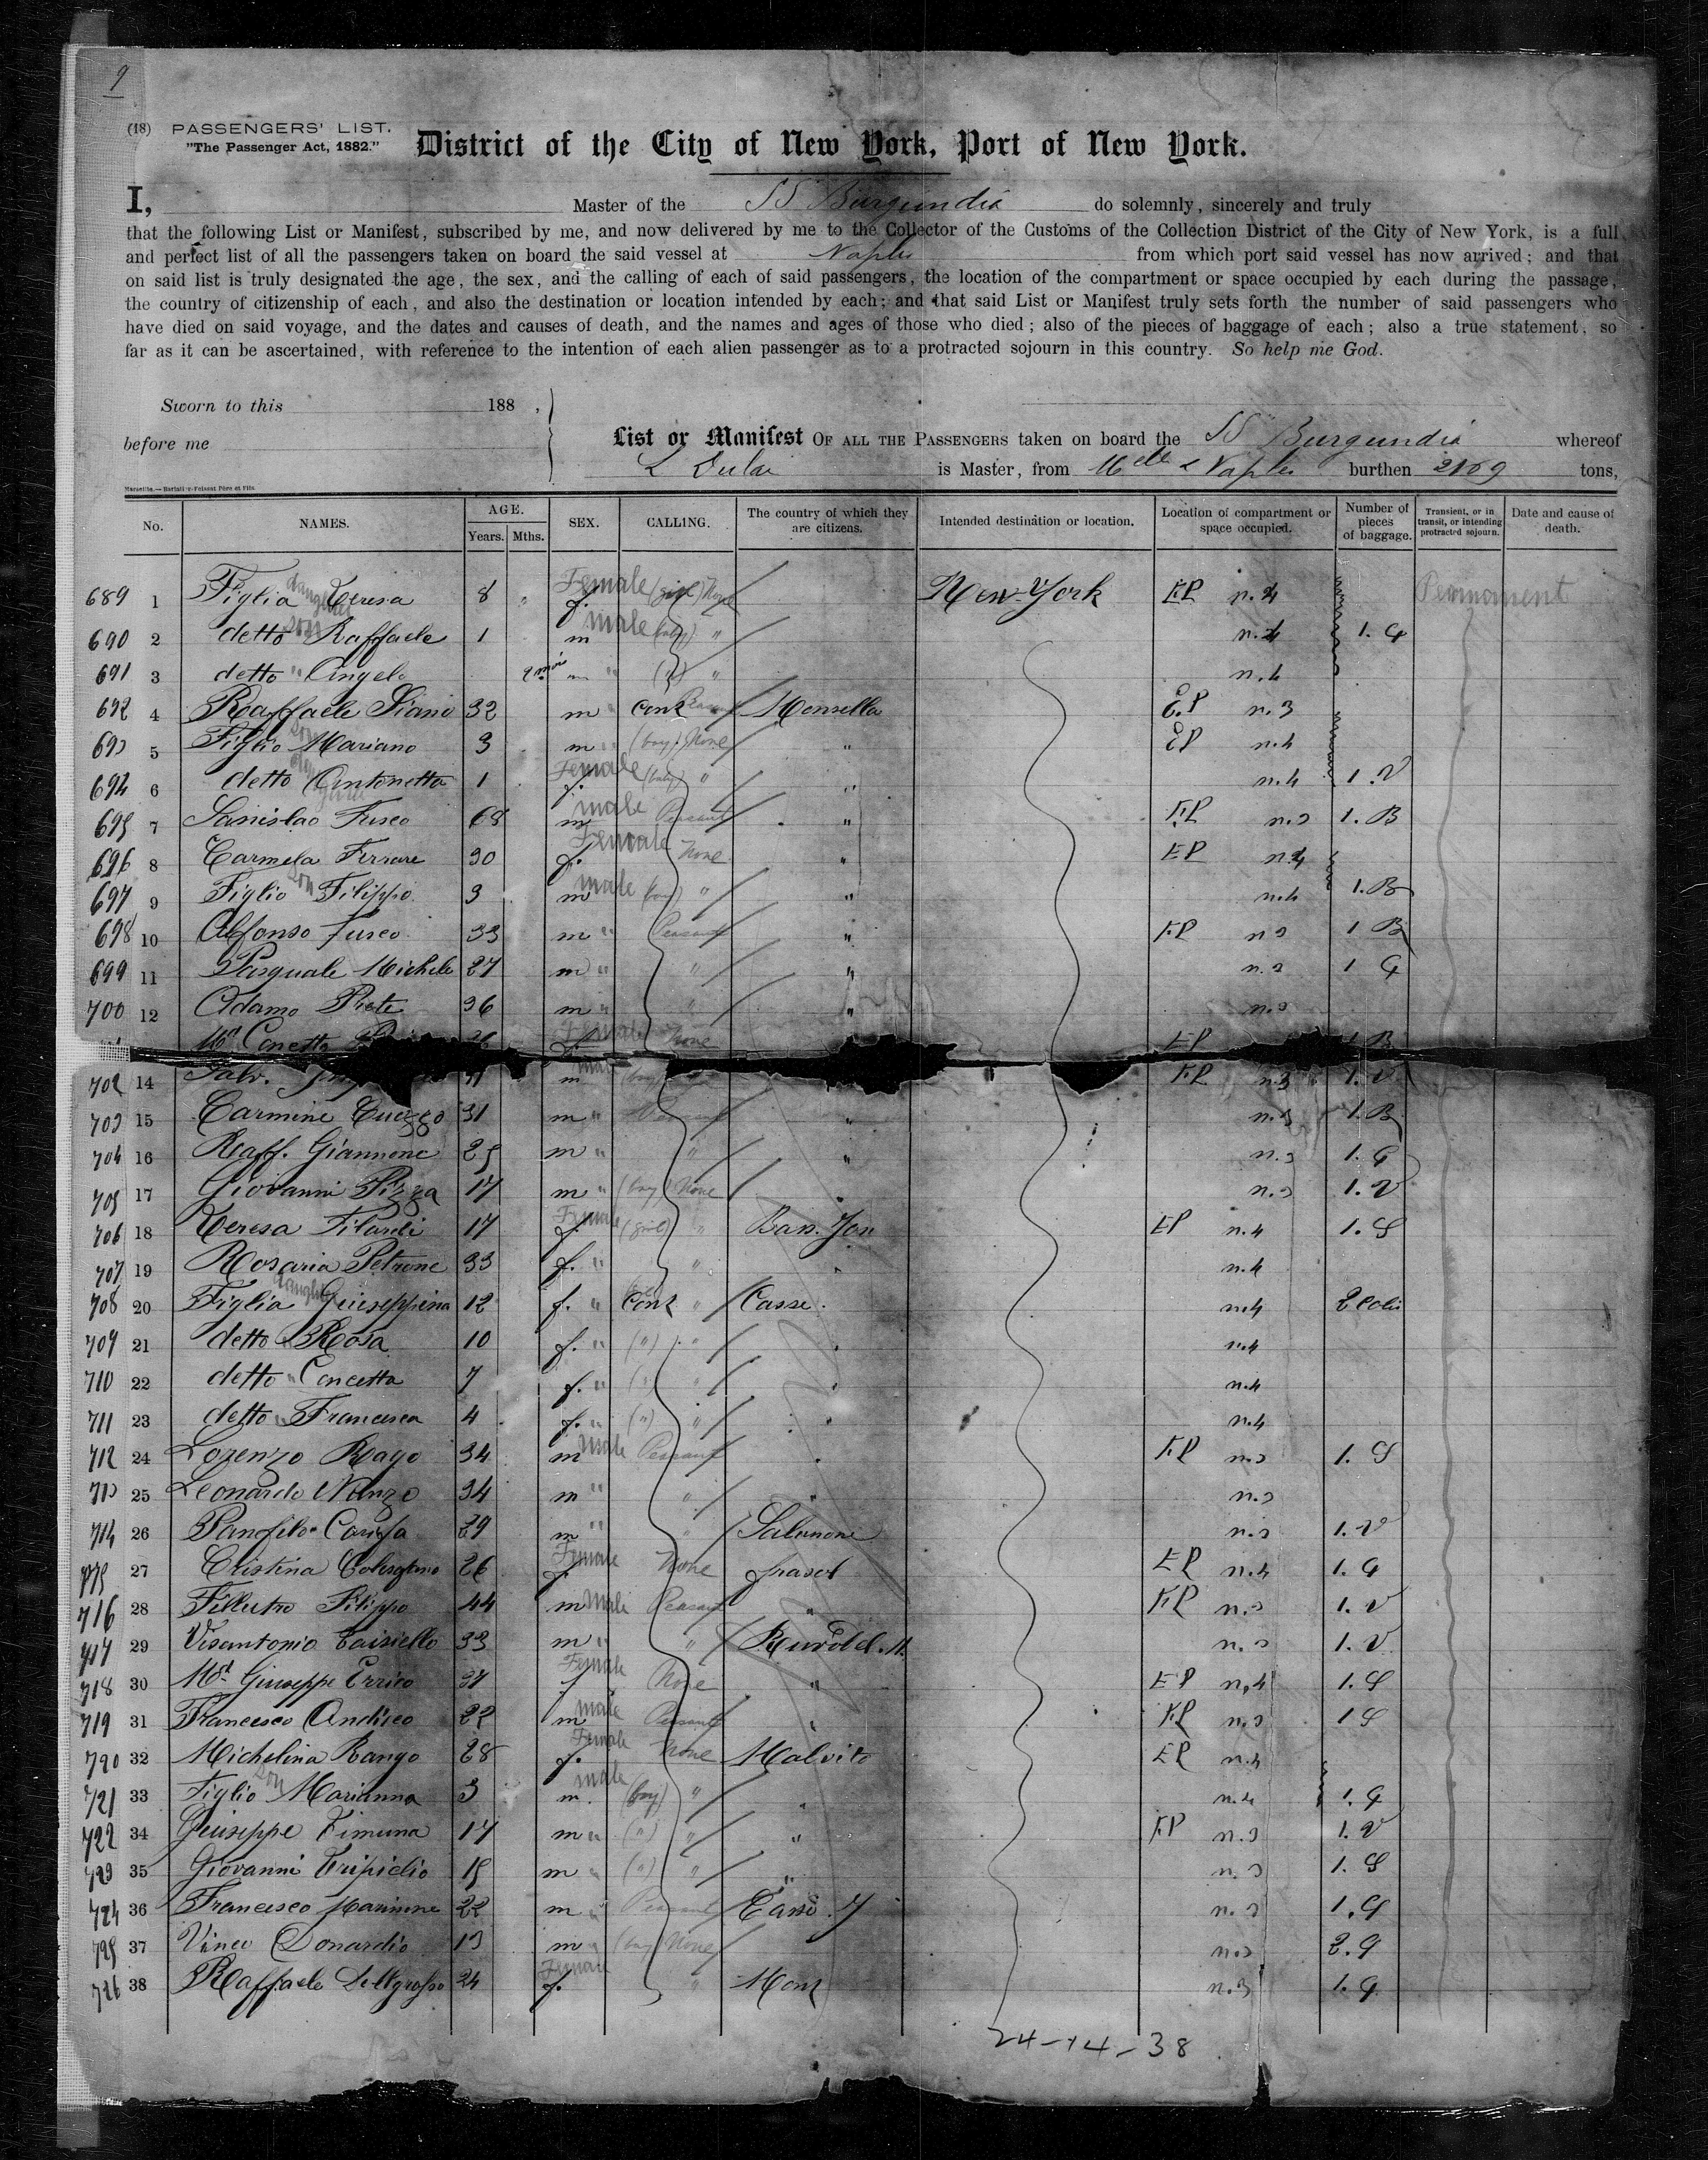 9
(18) PASSENGERS' LIST.
"The Passenger Act, 1882."
District of the City of New York, Port of New York.
I, Master of the SS Burgundia do solemnly, sincerely and truly
that the following List or Manifest, subscribed by me, and now delivered by me to the Collector of the Customs of the Collection District of the City of New York, is a full
and perfect list of all the passengers taken on board the said vessel at Naples from which port said vessel has now arrived; and that
on said list is truly designated the age, the sex, and the calling of each of said passengers, the location of the compartment or space occupied by each during the passage,
the country of citizenship of each, and also the destination or location intended by each; and that said List or Manifest truly sets forth the number of said passengers who
have died on said voyage, and the dates and causes of death, and the names and ages of those who died; also of the pieces of baggage of each; also a true statement, so
far as it can be ascertained, with reference to the intention of each alien passenger as to a protracted sojourn in this country. So help me God.
Sworn to this 188 ,
before me
List or Manifest OF ALL THE PASSENGERS taken on board the SS Burgundia whereof
is Master, from Naples burthen 2169 tons,
No. NAMES. AGE. Years. Mths. SEX. CALLING. The country of which they are citizens. Intended destination or location. Location of compartment or space occupied. Number of pieces of baggage. Transient, or in transit, or intending protracted sojourn. Date and cause of death.
689 1 Figlia daughter Teresa 8 " Female f. (girl) None New-York EP n.4 Permanent
690 2 detto son Raffaele 1 male m (baby) " n.4 1. G
691 3 detto " Angelo m " (") " n.4
692 4 Raffaele Siano 32 m " E.P n.3
693 5 Figlio son Mariano 3 m " (boy) None " EP n.4
694 6 detto Antonetta 1 Female f. (baby) " " n.4 1. V
695 7 Sanislao Fusco 68 male m Peasant " n.3 1. B
696 8 Carmela Ferrare 30 Female f. None " EP n.4
697 9 Figlio son Filippo 3 male m (boy) " " n.4 1. B
698 10 Alfonso Fusco 33 m " Peasant " n.3 1 B
699 11 Pasquale Michele 27 m " " " n.3 1 G
700 12 Adamo Prete 36 m " " " n.3
Female f. None EP 1. B
702 14 Salv. m n.3 1. V
703 15 Carmine Cuozzo 31 m " " n.3 1. B
704 16 Raff. Giannone 25 m " " " n.3 1. G
705 17 Giovanni Pizza 17 m " (boy) None " n.3 1. V
706 18 Teresa Filardi 17 Female f. (girl) " EP n.4 1. S
707 19 Rosaria Petrone 33 f. " " " n.4
708 20 Figlia daughter Giuseppina 12 f. " " Casse. n.4 2 Colis
709 21 detto Rosa 10 f. " (") " n.4
710 22 detto " Concetta 7 f. " (") " n.4
711 23 detto " Francesca 4 f. " (") " " n.4
712 24 Lorenzo Rago 34 male m Peasant n.3 1. S
713 25 Leonardo Nunzo 34 m " " " n.3
714 26 Panfilo 29 m " " n.3 1. V
715 27 Cristina 26 Female f. None EP n.4 1. G
716 28 Filippo 44 m male Peasant " n.3 1. V
717 29 Visantonio 33 m " " n.3 1. V
718 30 Giuseppe Errico Female f None " EP n.4 1. S
719 31 Francesco Andisco 22 male m Peasant " n.3 1 S
720 32 Michelina Rango 28 Female f. None Malvito EP n.4
721 33 Figlio son Marianna 3 male m. (boy) " " n.4 1. G
722 34 Giuseppe Fimiana 17 m " (") " " n.3 1. V
723 35 Giovanni Tripidio 15 m " (") " " n.3 1. S
724 36 Francesco 22 m " Peasant n.3 1. G
725 37 Vince Donardio 13 m " (boy) None n.3 2. G
726 38 Raffaele Dellgrosso 24 Female f. " n.3 1. G
24-14-38